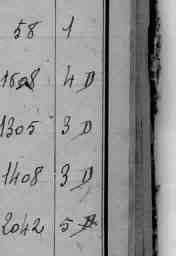 58 1
1608 4 D
1305 3 D
1408 3 D
2042 5